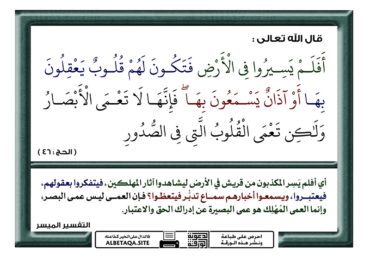 قال الله تعالى :
أَفَلَمْ يَسِيرُوا فِي الْأَرْضِ فَتَكُونَ لَهُمْ قُلُوبٌ يَعْقِلُونَ
بِهَا أَوْ آذَانٌ يَسْمَعُونَ بِهَا ۖ فَإِنَّهَا لَا تَعْمَى الْأَبْصَارُ
وَلَٰكِن تَعْمَى الْقُلُوبُ الَّتِي فِي الصُّدُورِ
( الحج : ٤٦ )
أي أفلم يَسِر المكذبون من قريش في الأرض ليشاهدوا آثار المهلكين، فيتفكروا بعقولهم،
فيعتبروا، ويسمعوا أخبارهم سماع تدبُّر فيتعظوا؟ فإن العمى ليس عمى البصر،
وإنما العمى المُهْلِك هو عمى البصيرة عن إدراك الحق والاعتبار.
التفسير الميسر
احرص على طباعة
ونشر هذه الورقة
فالدال على الخير كفاعله
ALBETAQA.SITE